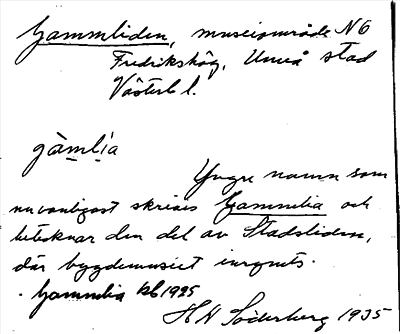 Gammliden, museiområde N 6
Fredrikshög, Umeå stad
Västerb l.
gàmlia
Yngre namn som
nu vanligast skrives Gammlia och
betecknar den del av Stadsliden,
där bygdemuseet inrymts.
. Gammlia kb 1925
H H Söderberg 1935